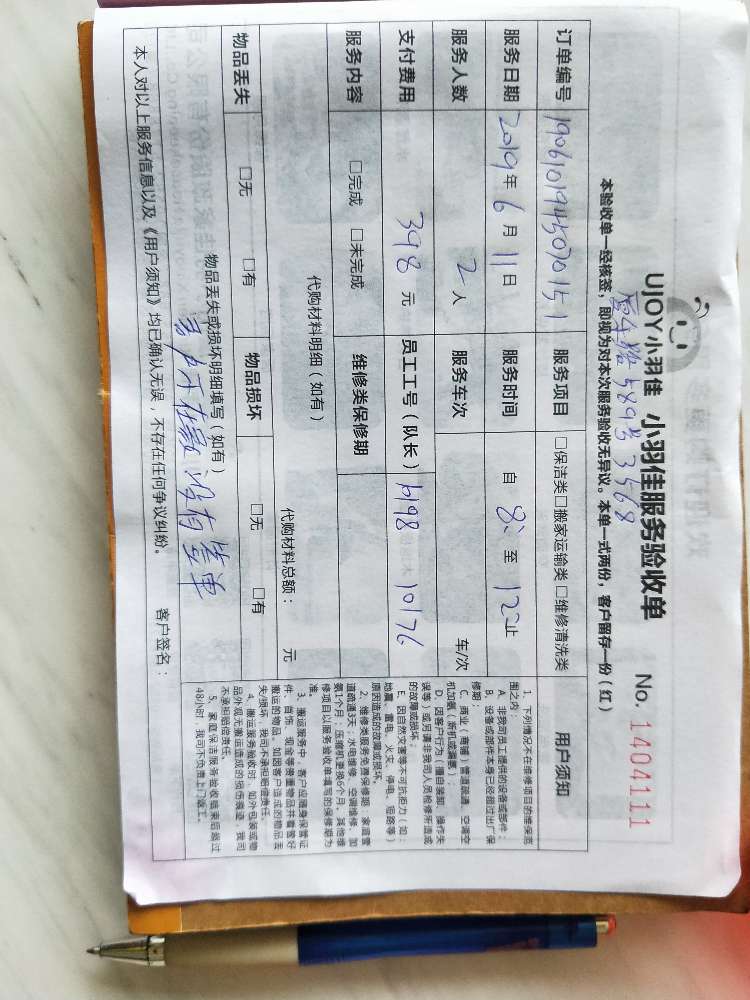 UJOY小羽佳 小羽佳服务验收单 No. 1404111
5893弄 3568
本验收单一经核签，即视为对本次服务验收无异议。本单一式两份，客户留存一份（红）
订单编号 190610194507015 1 服务项目 □保洁类□搬家运输类□维修清洗类
服务日期 2019年6月11日 服务时间 自 8: 至 12 止
服务人数 2人 服务车次 车/次
支付费用 398元 员工工号（队长） 6198 10176
服务内容 □完成 □未完成 维修类保修期
代购材料明细（如有） 代购材料总额： 元
物品丢失 □无 □有 物品损坏 □无 □有
物品丢失或损坏明细填写（如有）
客户不在家 没有签单
本人对以上服务信息以及《用户须知》均已确认无误，不存在任何争议纠纷。 客户签名：
用户须知
1、下列情况不在维修项目的维保范
围之内
A、非我司员工提供的设备或部件；
B、设备或部件本身已经超过出厂保
修期
C、商业（粤通）管道疏通、空调空
机加氨（新机或漏氨）；
D、因客户行为（擅自装卸、操作失
误等）或另请非我司人员检修所造成
的故障或损坏；
E、因自然灾害等不可抗拒力（如：
地震、雷电、火灾、停电、短路等）
原因造成的故障或损坏。
2、维修类服务免费保修期：家庭管
道疏通3天；水电维修、空调维修、加
氨1个月；压缩机更换6个月。其他维
修项目以服务验收单填写的保修期为
准。
3、搬运服务中，客户应随身保管证
件、首饰、现金等贵重物品并看管好
搬运的物品。如因客户造成的物品丢
失/损坏，我司不承担赔偿责任。
4、搬运服务验收时，如外包装或物
品外观无搬运造成的损伤痕迹，我司
不承担赔偿责任。
5、家庭保洁服务验收结束后超过
48小时，我司不负责上门返工。